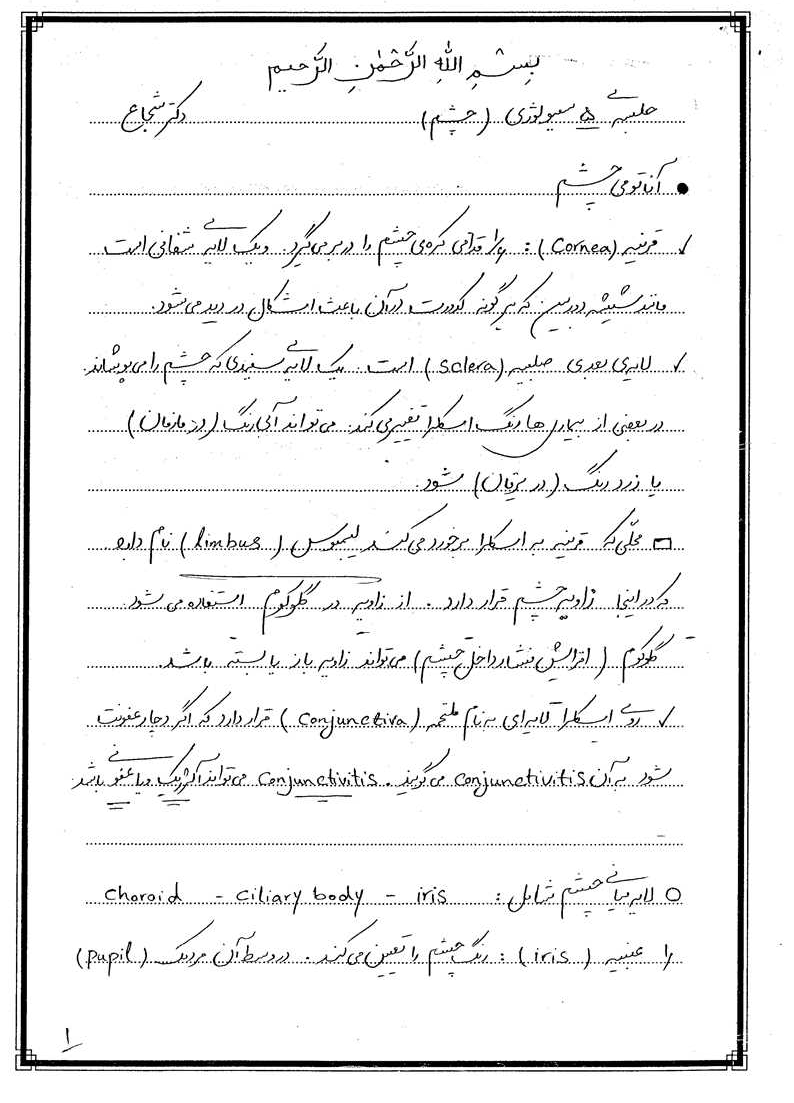 بِسْمِ اللهِ الرَّحْمٰنِ الرَّحیمِ
جلسه ی ۵ سمیولوژی (چشم) دکتر شجاع
● آناتومی چشم
✓ قرنیه (Cornea): ۱/۶ قدامی کره ی چشم را در بر می گیرد. و یک لایه ی شفافی است
مانند شیشه دوربین که هر گونه کدورت در آن باعث اشکال در دید می شود.
✓ لایه ی بعدی صلبیه (Sclera) است. یک لایه ی سفیدی که چشم را می پوشاند.
در بعضی از بیماری ها رنگ اسکلرا تغییر می کند. می تواند آبی رنگ
یا زرد رنگ (در یرقان) شود.
□ محلّی که قرنیه به اسکلرا برخورد می کند لیمبوس (limbus) نام دارد
که در اینجا زاویه چشم قرار دارد. از زاویه در گلوکوم استفاده می شود.
گلوکوم (افزایش فشار داخل چشم) می تواند زاویه باز یا بسته باشد.
✓ روی اسکلرا لایه ای به نام ملتحمه (Conjunctiva) قرار دارد که اگر دچار عفونت
شود به آن conjunctivitis می گویند. Conjunctivitis می تواند آلرژیک و یا عفونی باشد.
○ لایه میانی چشم شامل: choroid - ciliary body - iris
۱) عنبیه (iris): رنگ چشم را تعیین می کند. در وسط آن مردمک (pupil)
۱